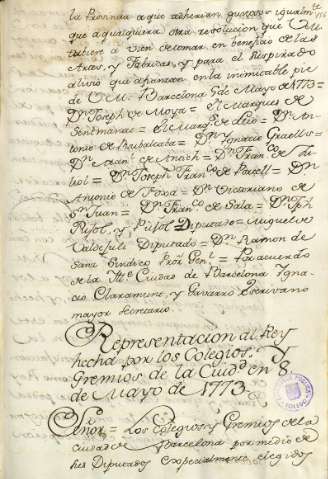 la Provincia a que adherian gustosos igualmte
que a qualquiera otra resolucion que VM.
tubiere a vien de tomar en beneficio de las
Artes, y Fabricas, y para el suspirado
alivio que afianzan en la inimitable pie
de VM. Barcelona 7 de Mayo de 1773 =
Dn. Joseph de Moya = El Marques de
Sentmanat = El Marqs. de Lio = Dn. An-
tonio de = Dn. Ygnacio Graells =
Dn. Manl. de = Dn. Franco. de
= Dn. Joseph Franco. de = Dn.
Antonio de Foxa = Dn. Victoriano de
Sn. Juan = Dn. Franco. de Sala = Dn. Jph
Pujol, y Pujol Diputado = Miguel de
Valdejuli Diputado = Dn. Ramon de
Sans Sindico Pror. Genl. = Por acuerdo
de la Ilte. Ciudad de Barcelona Ygna-
cio Claramunt, y Escrivano
mayor Secretario
Representacion al Rey
hecha por los Colegios, y
Gremios de la Ciudd. en 8.
de Mayo de 1773.
Señor = Los Colegios y Gremios de la
Ciudad de Barcelona por medio de
Diputados especialmente elegidos